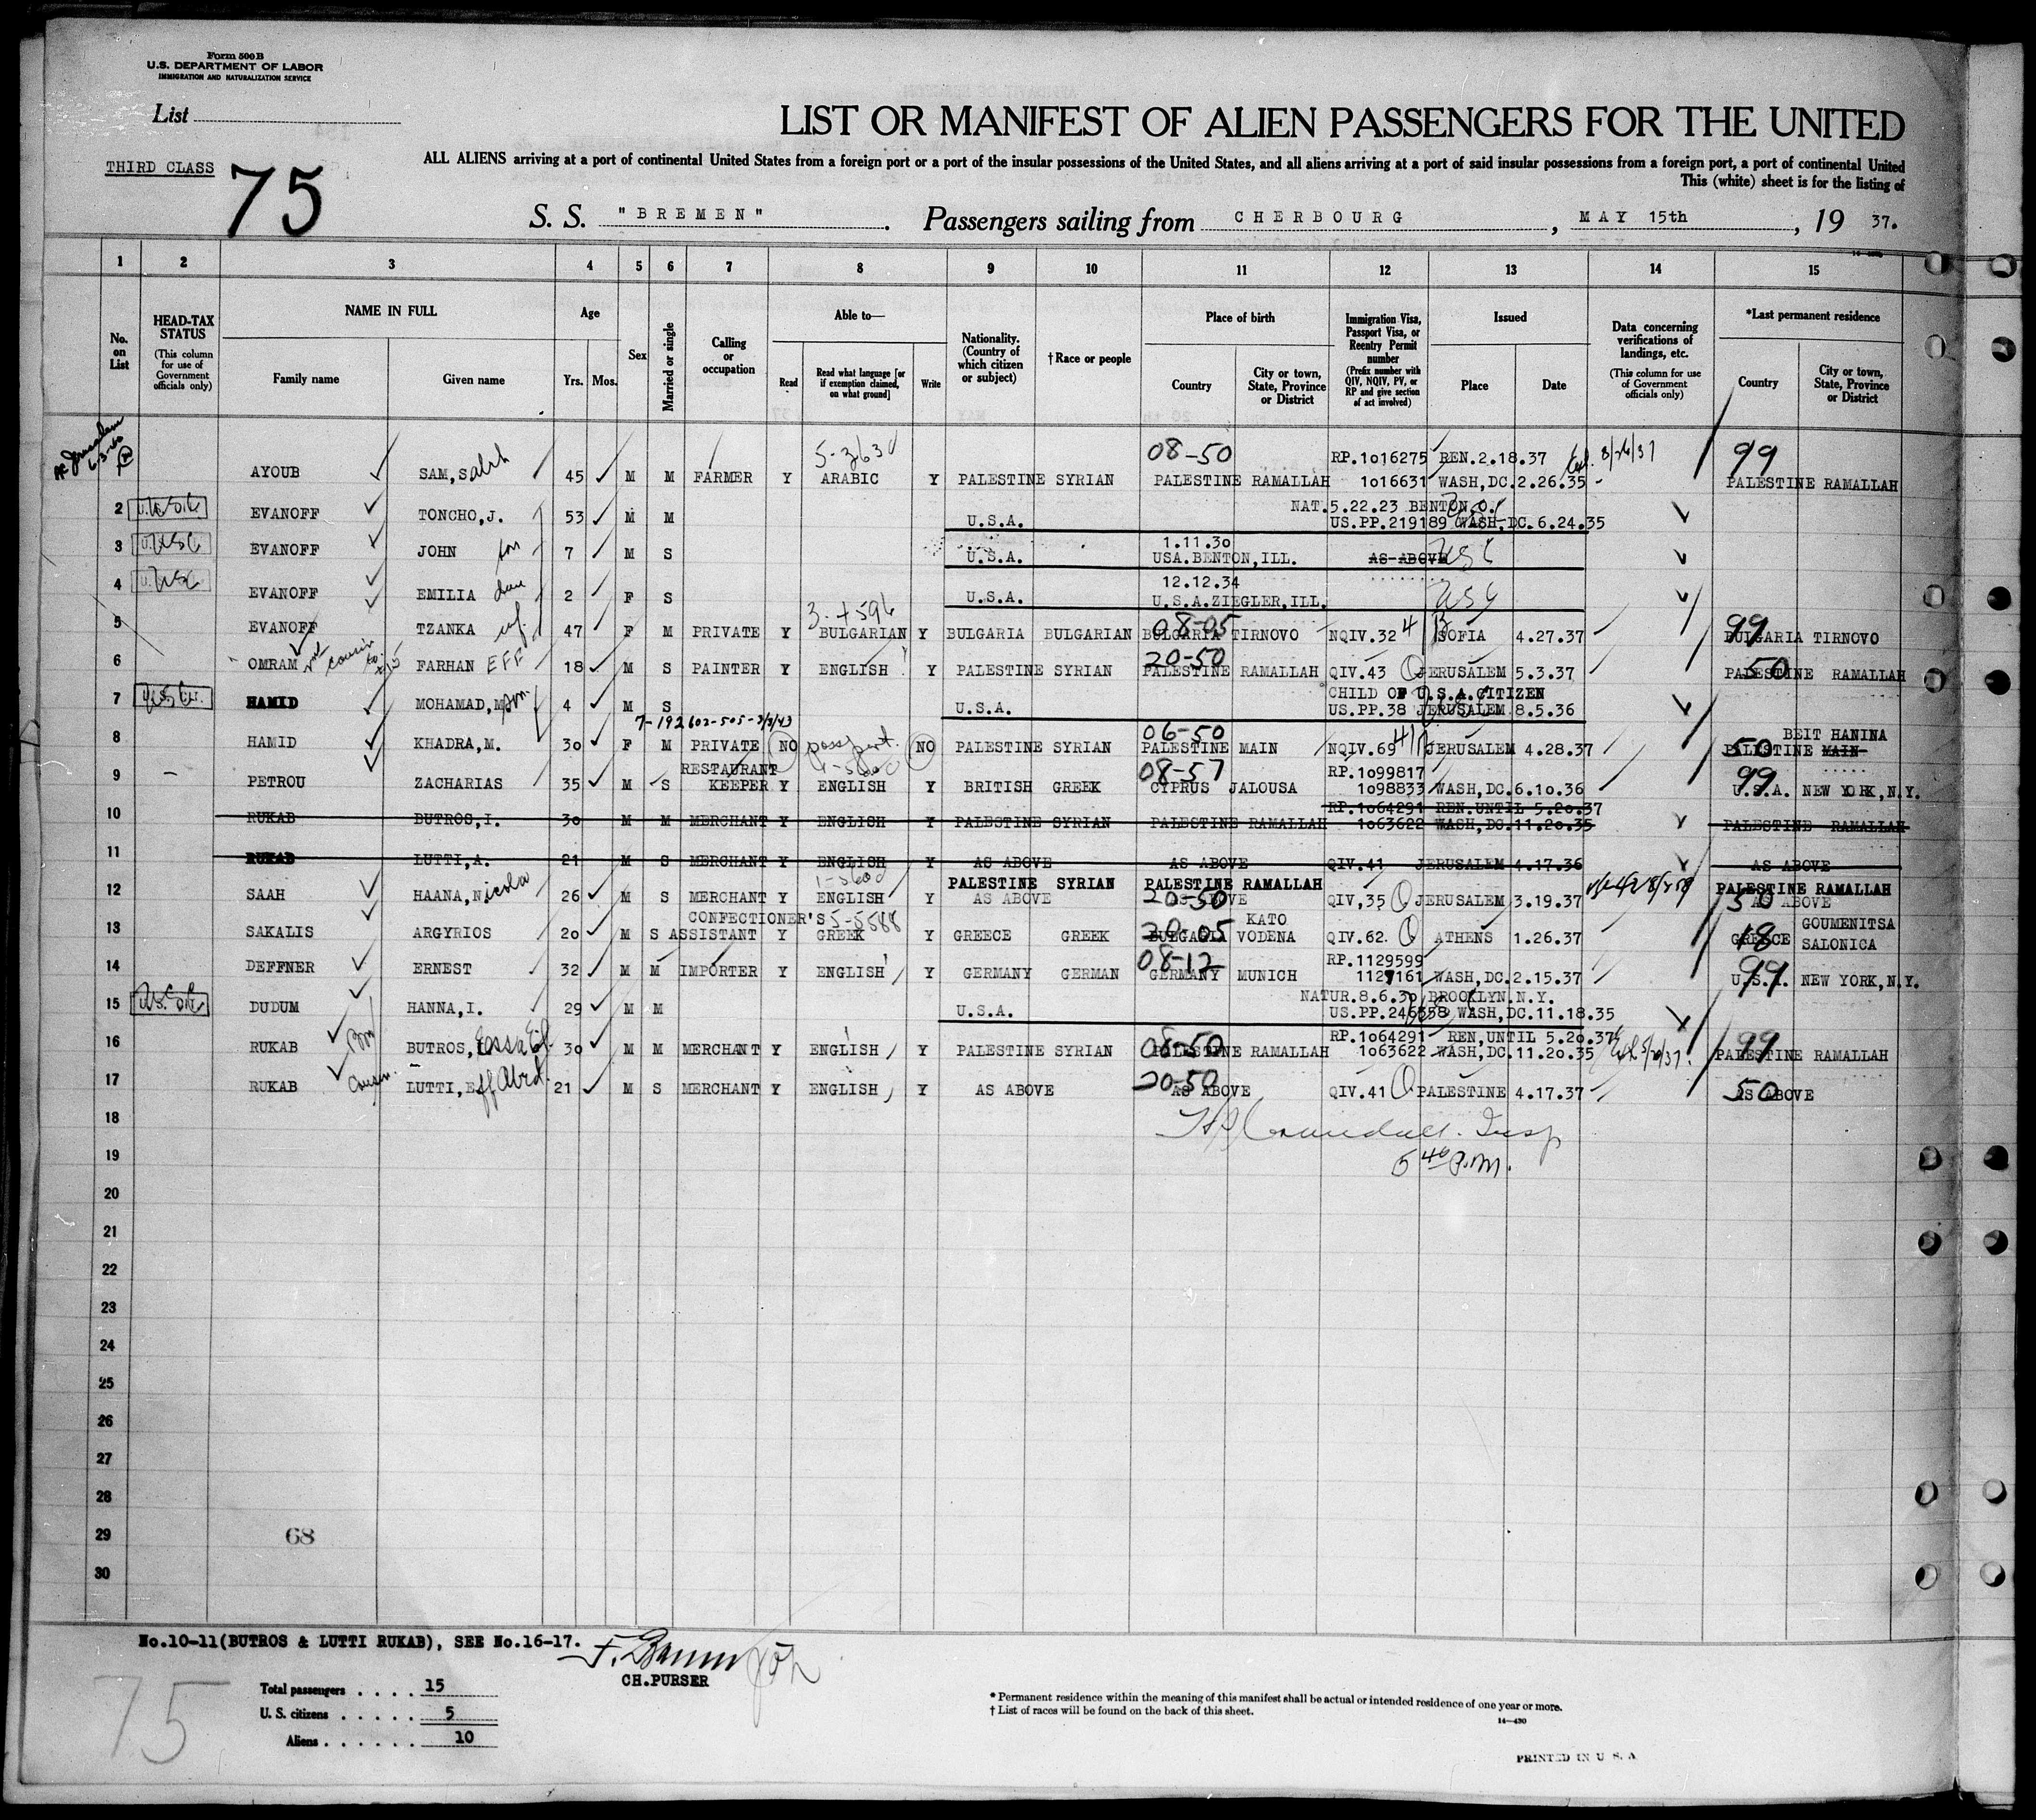 Form 500B
U.S. DEPARTMENT OF LABOR
IMMIGRATION AND NATURALIZATION SERVICE
List
LIST OR MANIFEST OF ALIEN PASSENGERS FOR THE UNITED
THIRD CLASS
75
ALL ALIENS arriving at a port of continental United States from a foreign port or a port of the insular possessions of the United States, and all aliens arriving at a port of said insular possessions from a foreign port, a port of continental United
This (white) sheet is for the listing of
S. S. "BREMEN". Passengers sailing from CHERBOURG, MAY 15th, 19 37.
1 2 3 4 5 6 7 8 9 10 11 12 13 14 15
No. on List
HEAD-TAX STATUS (This column for use of Government officials only)
NAME IN FULL
Family name Given name
Age
Yrs. Mos.
Sex
Married or single
Calling or occupation
Able to—
Read
Read what language [or if exemption claimed, on what ground]
Write
Nationality. (Country of which citizen or subject)
†Race or people
Place of birth
Country
City or town, State, Province or District
Immigration Visa, Passport Visa, or Reentry Permit number (Prefix number with QIV, NQIV, PV, or RP and give section of act involved)
Issued
Place Date
Data concerning verifications of landings, etc. (This column for use of Government officials only)
*Last permanent residence
Country
City or town, State, Province or District
Jerusalem
6-3-40
5-3630 08-50 RP.1016275 REN.2.18.37 3/26/37 99
AYOUB SAM, Saleh 45 M M FARMER Y ARABIC Y PALESTINE SYRIAN PALESTINE RAMALLAH 1016631 WASH,DC.2.26.35 PALESTINE RAMALLAH
NAT.5.22.23 BENTON,O.
2 EVANOFF TONCHO,J. 53 M M U.S.A. US.PP.219189 WASH,DC.6.24.35
1.11.30
3 USC EVANOFF JOHN son 7 M S U.S.A. USA.BENTON,ILL. AS ABOVE USC
12.12.34
4 USC EVANOFF EMILIA dau 2 F S U.S.A. U.S.A.ZIEGLER,ILL. USC
08-05 99
5 EVANOFF TZANKA wf. 47 F M PRIVATE Y BULGARIAN Y BULGARIA BULGARIAN BULGARIA TIRNOVO NQIV.32 SOFIA 4.27.37 BULGARIA TIRNOVO
20-50 50
6 OMRAM cousin to FARHAN EFF 18 M S PAINTER Y ENGLISH Y PALESTINE SYRIAN PALESTINE RAMALLAH QIV.43 JERUSALEM 5.3.37 PALESTINE RAMALLAH
CHILD OF U.S.A.CITIZEN
7 HAMID MOHAMAD,M. son 4 M S U.S.A. US.PP.38 JERUSALEM 8.5.36
7-192602-505-3/3/43 passport. 06-50 BEIT HANINA
8 HAMID KHADRA,M. 30 F M PRIVATE NO NO PALESTINE SYRIAN PALESTINE MAIN NQIV.69 JERUSALEM 4.28.37 50 PALESTINE MAIN
RESTAURANT 08-57 RP.1099817
9 PETROU ZACHARIAS 35 M S KEEPER Y ENGLISH Y BRITISH GREEK CYPRUS JALOUSA 1098833 WASH,DC.6.10.36 99 U.S.A. NEW YORK,N.Y.
RP.1064291 REN.UNTIL 5.20.37
10 RUKAB BUTROS,I. 30 M M MERCHANT Y ENGLISH Y PALESTINE SYRIAN PALESTINE RAMALLAH 1063622 WASH,DC.11.20.35 PALESTINE RAMALLAH
11 RUKAB LUTTI,A. 21 M S MERCHANT Y ENGLISH Y AS ABOVE AS ABOVE QIV.41 JERUSALEM 4.17.36 AS ABOVE
PALESTINE SYRIAN PALESTINE RAMALLAH PALESTINE RAMALLAH
12 SAAH HAANA,Nicola 26 M S MERCHANT Y ENGLISH Y AS ABOVE 20-50 AS ABOVE QIV,35 JERUSALEM 3.19.37 50 AS ABOVE
CONFECTIONER'S 5-5588 KATO GOUMENITSA
13 SAKALIS ARGYRIOS 20 M S ASSISTANT Y GREEK Y GREECE GREEK 20-05 BULGARIA VODENA QIV.62 ATHENS 1.26.37 18 GREECE SALONICA
08-12 RP.1129599
14 DEFFNER ERNEST 32 M M IMPORTER Y ENGLISH Y GERMANY GERMAN GERMANY MUNICH 1127161 WASH,DC.2.15.37 99 U.S.A. NEW YORK,N.Y.
NATUR.8.6.30 BROOKLYN.N.Y.
15 DUDUM HANNA,I. 29 M M U.S.A. US.PP.246358 WASH,DC.11.18.35
RP.1064291 REN,UNTIL 5.20.37
16 RUKAB BUTROS, Essa 30 M M MERCHANT Y ENGLISH Y PALESTINE SYRIAN 08-50 PALESTINE RAMALLAH 1063622 WASH,DC.11.20.35 99 PALESTINE RAMALLAH
17 RUKAB Cousin LUTTI, 21 M S MERCHANT Y ENGLISH Y AS ABOVE 20-50 AS ABOVE QIV.41 PALESTINE 4.17.37 50 AS ABOVE
18 Insp
19 5 40 P.M.
20
21
22
23
24
25
26
27
28
29 68
30
No.10-11(BUTROS & LUTTI RUKAB), SEE No.16-17.
CH.PURSER
75
Total passengers . . . . 15
U. S. citizens . . . . . 5
Aliens . . . . . . 10
* Permanent residence within the meaning of this manifest shall be actual or intended residence of one year or more.
† List of races will be found on the back of this sheet.
14—430
PRINTED IN U. S. A